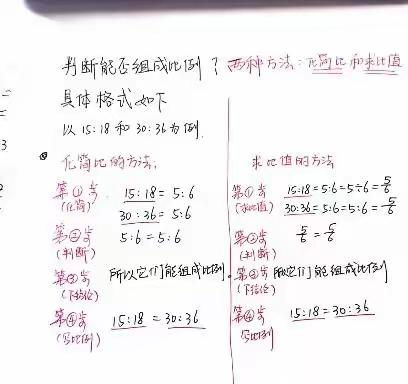 判断能否组成比例？两种方法：化简比和求比值
具体格式如下
以 15:18 和 30:36 为例.
化简比的方法:
第①步 15:18 = 5:6
(化简) 30:36 = 5:6
第②步 5:6 = 5:6
(判断)
第③步 所以它们能组成比例.
(下结论)
第④步 15:18 = 30:36
(写比例)
求比值的方法
第①步 15:18 = 5:6 = 5÷6 = 5/6
(求比值) 30:36 = 5:6 = 5:6 = 5/6
第②步 5/6 = 5/6
(判断)
第③步 所以它们能组成比例
(下结论)
第④步 15:18 = 30:36
写比例